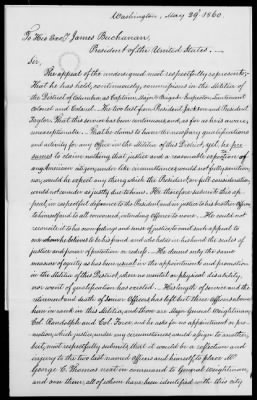 Washington, May 29th 1860.
To His Excell'y James Buchanan,
President of the United States.—
Sir,
The appeal of the undersigned most respectfully represents;
That he has held, continuously, commissions in the Militia of the
District of Columbia, as Captain, Major & Brigade Inspector, Lieutenant
Colonel and Colonel. The two last from President Jackson and President
Taylor. That this service has been continuous, and, so far as he is aware,
unexceptionable. That he claims to have the necessary qualifications
and activity for any office in the Militia of this District, yet, he pre
sumes to claim nothing that justice and a reasonable
any honorable citizen, under like circumstances, would not fully sanction;
nor, would he expect any thing which the President, on full consideration,
would not consider as justly due to him. He therefore submits this ap
peal, in respectful deference to the President and in justice to his brother Officers,
to himself and to all concerned, intending offence to none. He could not
reconcile it to his own feelings and sense of justice to omit such appeal to
one whom he believes to be his friend and who holds in his hand the scales of
justice and power of protection or redress. He desires only the same
measure of equity as has been used in the appointments and promotions
in the Militia of this District, when no mental or physical disability,
nor want of qualification has existed. His length of service and the
retirement and death of Senior Officers has left but three officers above
him in rank in this Militia, and those are Major General Weightman,
Col. Randolph and Col. Force, and he asks for no appointment or pro-
motion, which justice, under any circumstances, would assign to another,
but, most respectfully submits, that it would be a reflection and
injury to the two last named Officers and himself, to place Mr
George C. Thomas next in command to General Weightman,
and over them; all of whom have been identified with this city